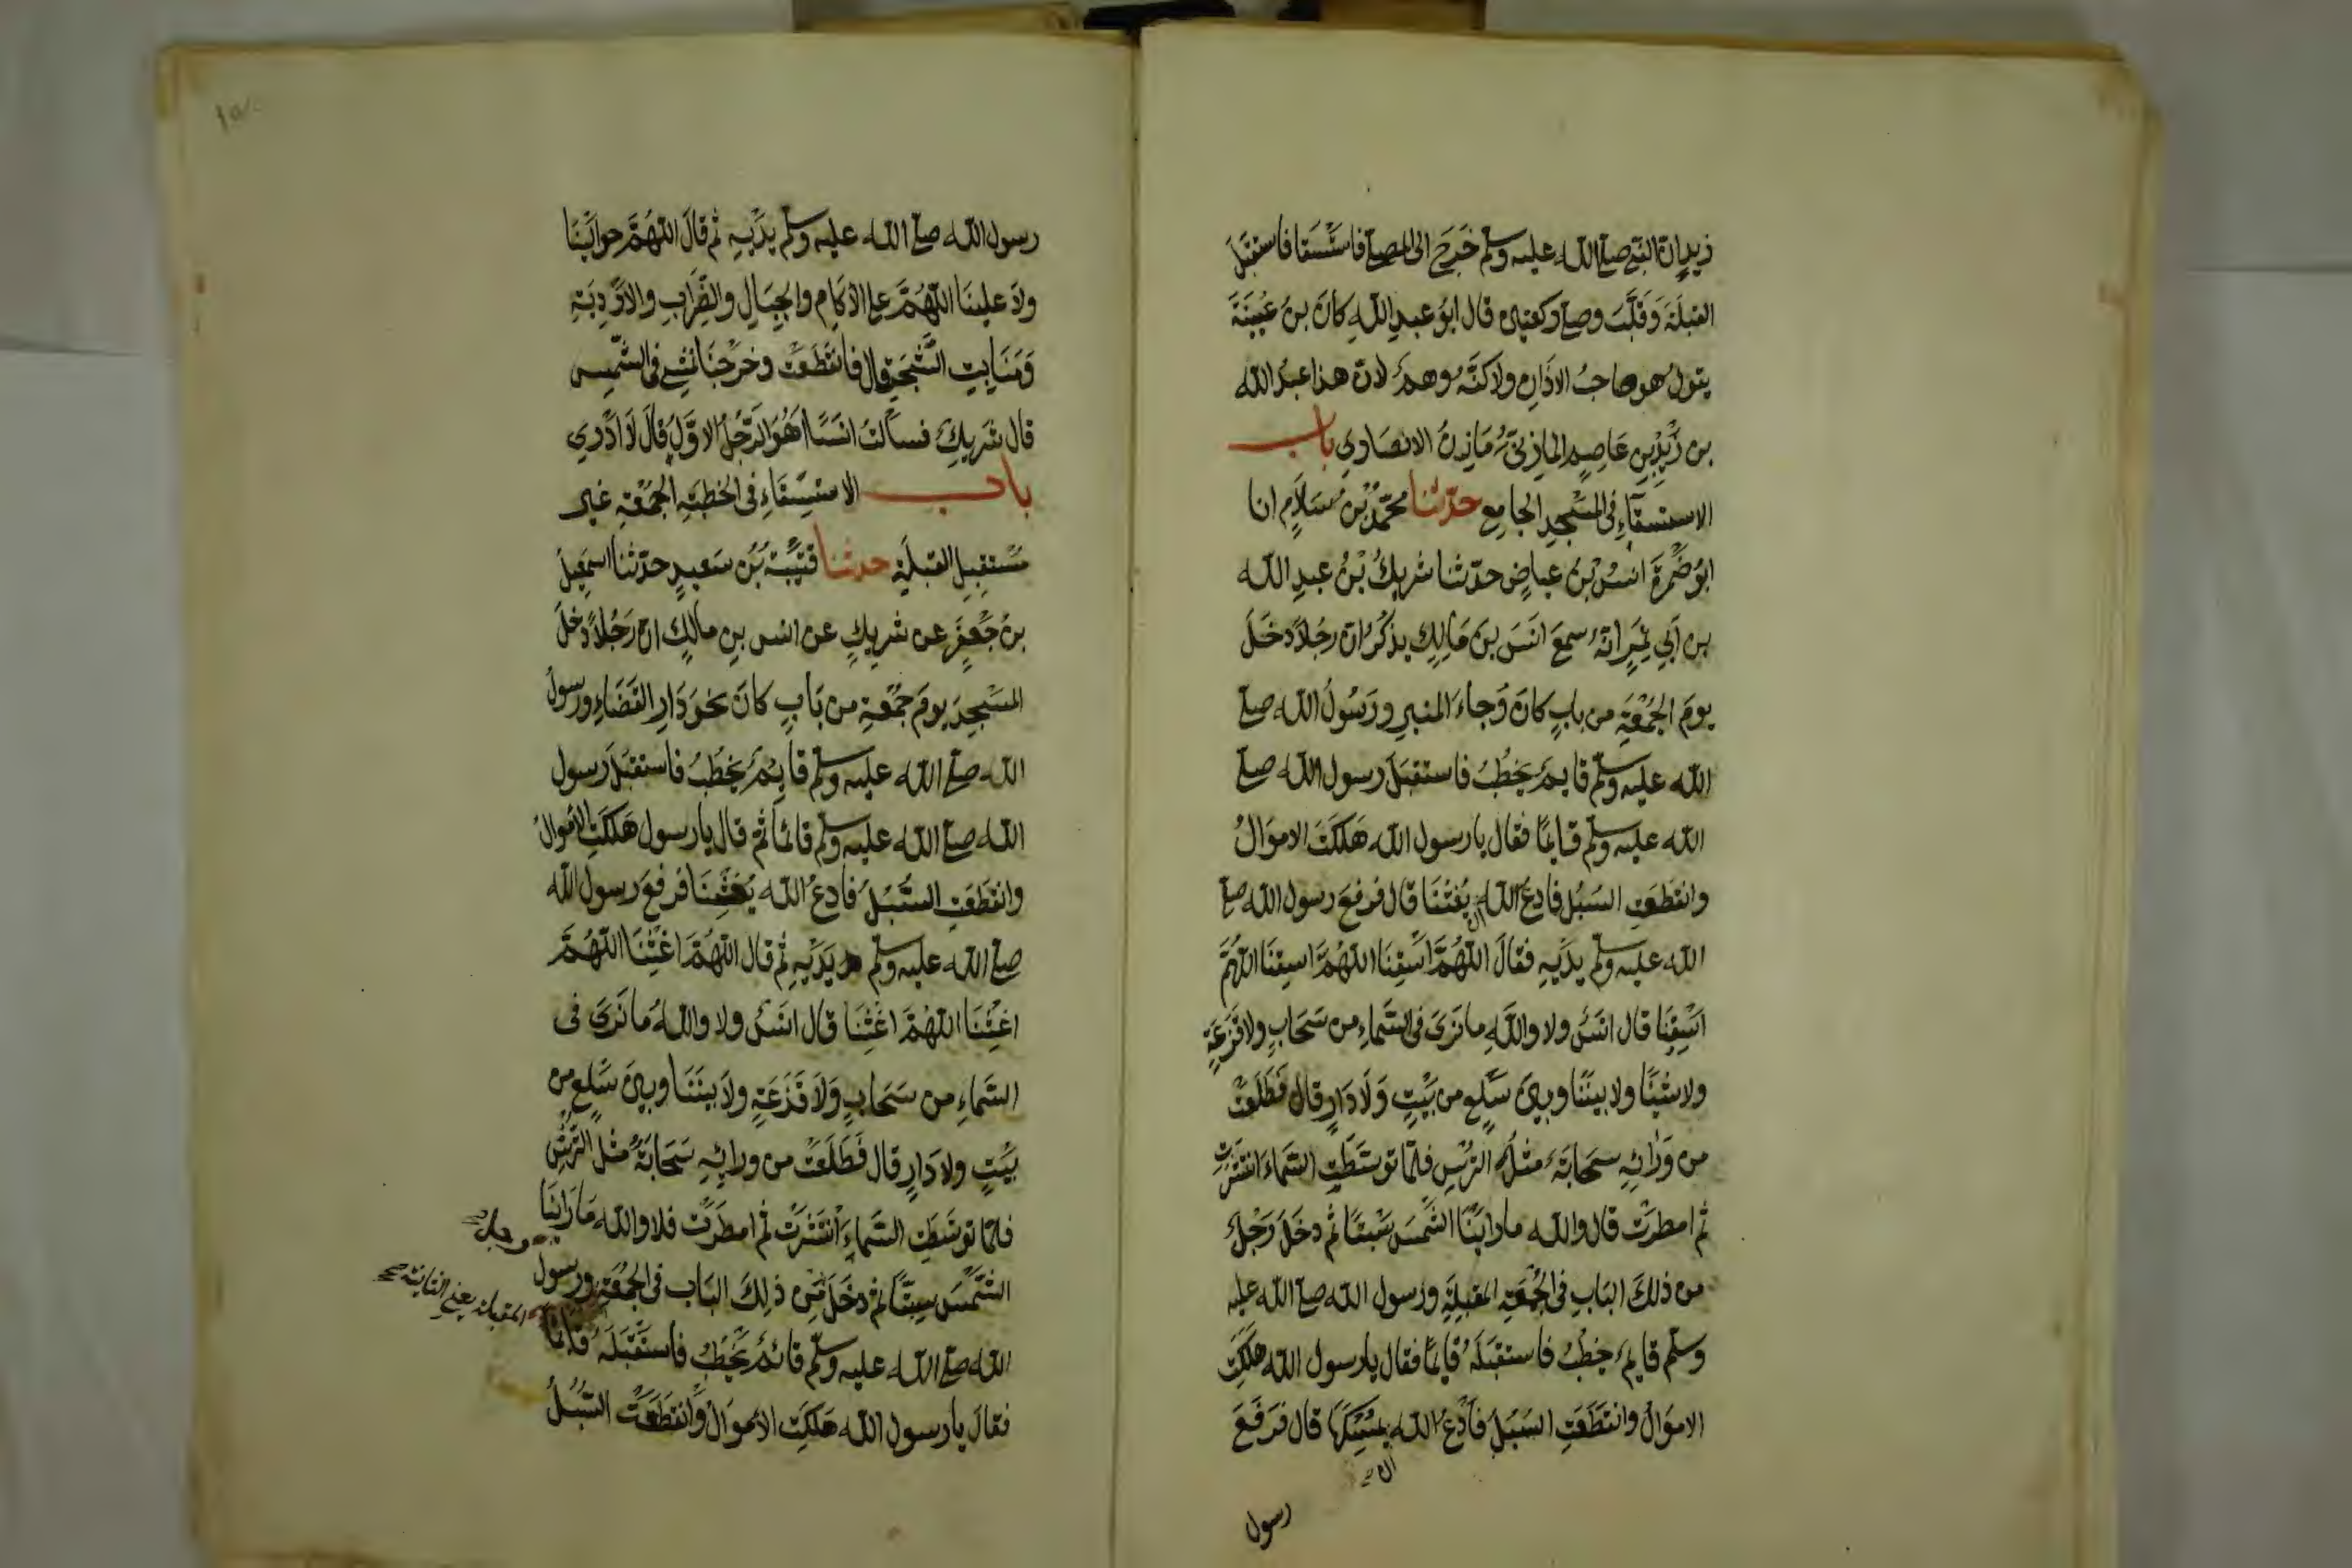 زيد ان النبي صلى الله عليه وسلم خَرَجَ الى المصلى فاستسقا فاستقبَلَ
القبلَةَ وَقَلَّبَ وصلى ركعتين قال ابُو عبدِ اللهِ كانَ بنُ عُيَينَةَ
يقولُ هو صاحبُ الاذانِ ولاكنَّهُ وهمٌ لان هذا عبدُ الله
بن زَيْدِ بنِ عَاصِمٍ المازِنيُّ مَازِنُ الانصَارِي باب
الاستسقاءِ في المَسْجِدِ الجامِعِ حدّثنا محمّدُ بْنُ سَلَامٍ انا
ابُو ضَمْرَةَ انسُ بنُ عياضٍ حدّثنا شريكُ بْنُ عبدِ الله
بن اَبي نَمِرٍ انّهُ سمعَ انَسَ بنَ مَالِكٍ يذكُرُ ان رجُلاً دخَلَ
يومَ الجُمْعَةِ من بابٍ كانَ وُجاءَ المنبرِ ورَسُولُ الله صلى
الله عليه وسلم قايمٌ يخطُبُ فاستقبَلَ رسول الله صلى
الله عليه وسلم قايمًا فقال يا رسول الله هَلَكَتَ الاموَالُ
وانقطَعَتِ السُبُل فادعُ الله يُغثْنَا قال فرفعَ رسول الله صلى
الله عليه وسلم يدَيْهِ فقالَ اللهُمَّ اسْقِنَا اللهُمَّ اسقِنَا اللهُمَّ
اسْقِنَا قال انَسٌ ولا واللهِ ما نَرَى في السَّمَاءِ من سَحَابٍ ولا قزَعَةٍ
ولا شيْئًا ولا بينَنَا وبينَ سَلْعٍ من بَيْتٍ وَلَا دَارٍ قال فَطَلَعَتْ
من وَرَائِهِ سحَابَةٌ مثلُ التُرْسِ فلمّا توسّطَتِ السَّمَاءَ انتشَرَت
ثم امطرَتْ قال والله ما راَيْنَا الشَّمسَ سَبْتًا ثم دخَلَ رَجُلٌ
من ذلكَ البَابِ في الجُمْعَةِ المقبِلَةِ ورَسول الله صلى الله عليه
وسلم قايمٌ يخطُبُ فاستقبَلَهُ قايمًا فقال يا رسول الله هلَكَت
الاموَالُ وانقَطَعَتِ السَبُلُ فاَدْعُ الله يُمْسِكْهَا قال فرَفَعَ
رسول
رسول الله صلى الله عليه وسلم يدَيْهِ ثم قالَ اللهُمَّ حوالَيْنَا
ولا علينَا اللهُمَّ على الاكَامِ والجِبَالِ والظِرَابِ والاوْدِيَةِ
وَمَنَابِتِ الشَّجَرِ قال فانقَطَعَتْ وخرَجْنَا نمْشي في الشّمسِ
قال شَرِيكٌ فسألتُ انَسًا اَهُوَ الرَّجُلُ الاوَّلُ قالَ لَا اَدْرِي
باب الاستِسْقَاءِ في الخطبَةِ الجُمْعَةِ غير
مُسْتقبِلِ القبلَةِ حدثنا قتَيْبَةُ بْنُ سَعيدٍ حدّثنا اسمعِيلُ
بنُ جَعْفَرٍ عن شريكٍ عن انس بنِ مالكٍ ان رَجُلاً دخلَ
المَسْجِدَ يومَ جُمْعَةٍ من بَابٍ كانَ نحوَ دَارِ القَضَاءِ ورسولُ
الله صلى الله عليه وسلم قايمٌ يخطُبُ فاستقبَلَ رَسول
الله صلى الله عليه وسلم قائماً ثم قال يا رسول هَلَكَتِ الاموالُ
وانقطَعَتِ السُّبُلُ فادعُ الله يُغِثْنَا فرفعَ رسول الله
صلى الله عليه وسلم يَدَيْهِ ثم قال اللهُمَّ اغِثْنَا اللهُمَّ
اغِثْنَا اللهُمَّ اغِثْنَا قال انَسٌ ولا واللهُ ما نَرَى في
السَّمَاءِ من سَحَابٍ وَلَا قَزَعَةٍ ولَا بينَنَا وبينَ سَلعٍ من
بَيْتٍ ولا دَارٍ قال فَطَلَعَتْ من ورائِهِ سَحَابَةٌ مثل التُرْسِ
فلمّا توسَّطَتِ السَّمَاءَ انْتَشَرَتْ ثم امطَرَتْ فلا والله مَا رَاَيْنَا
الشَّمْسَ سبتًا ثم دخَلَ من ذلِكَ البَاب في الجُمْعَةِ ورسول
رجل
المقبلة يعنى الثانية
الله صلى الله عليه وسلم قائمٌ يخْطُبُ فاستَقْبَلَهُ قائمًا
فقالَ يا رسول الله هَلَكَتِ الاَموَالُ وانقطَعَتْ السُّبُلُ